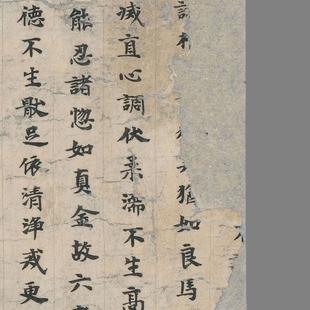 猶如良馬
直心調伏柔濡不生高
能忍諸惱如真金故六
德不生厭足依清淨戒更